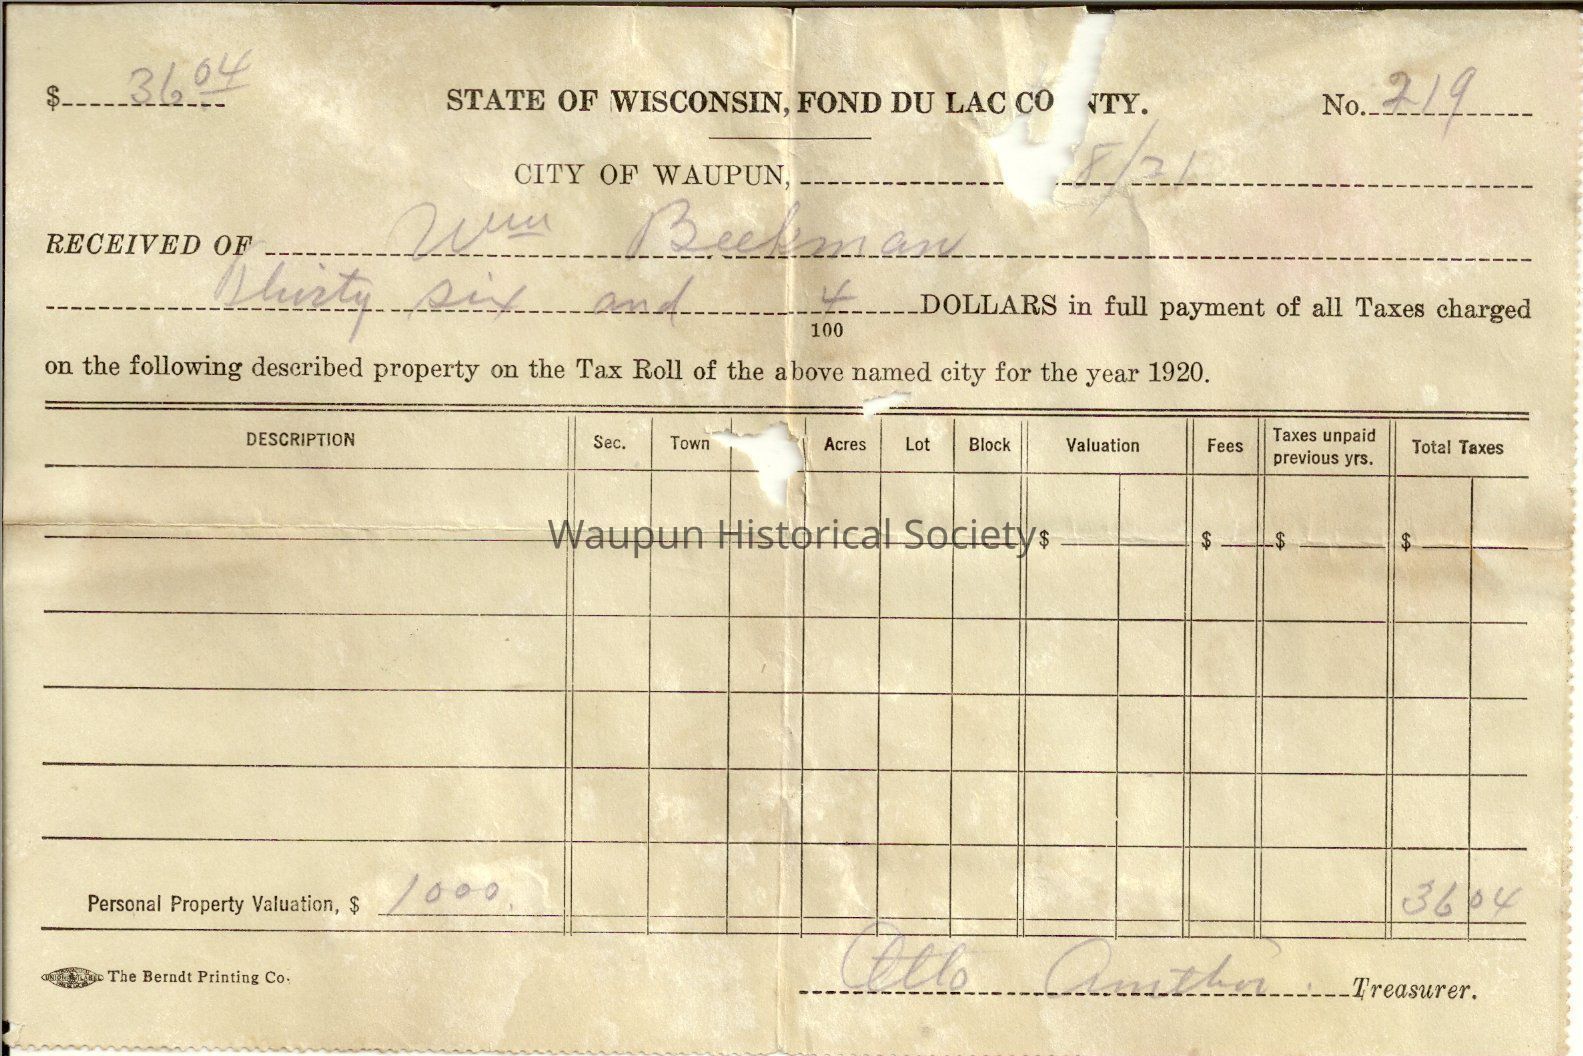 $ 36 04 STATE OF WISCONSIN, FOND DU LAC CO NTY. No. 219
CITY OF WAUPUN, 8/21
RECEIVED OF Wm Beekman
Thirty six and 4/100 DOLLARS in full payment of all Taxes charged
on the following described property on the Tax Roll of the above named city for the year 1920.
DESCRIPTION Sec. Town Acres Lot Block Valuation Fees Taxes unpaid previous yrs. Total Taxes
Waupun Historical Society
$ $ $ $
Personal Property Valuation, $ 1000. 36 04
UNION LABEL The Berndt Printing Co.
Otto Amthor. Treasurer.